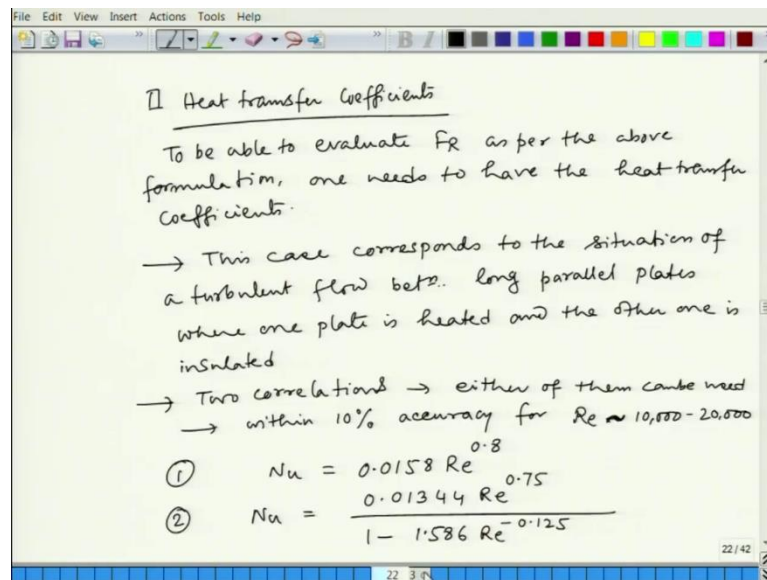 File Edit View Insert Actions Tools Help
II Heat transfer Coefficients
To be able to evaluate FR as per the above
formulation, one needs to have the heat transfer
coefficients.
→ This case corresponds to the situation of
a turbulent flow betn. long parallel plates
where one plate is heated and the other one is
insulated
→ Two correlations → either of them can be used
→ within 10% accuracy for Re ~ 10,000 - 20,000
① Nu = 0.0158 Re^0.8
② Nu = 0.01344 Re^0.75 / 1 - 1.586 Re^-0.125
22/42
22